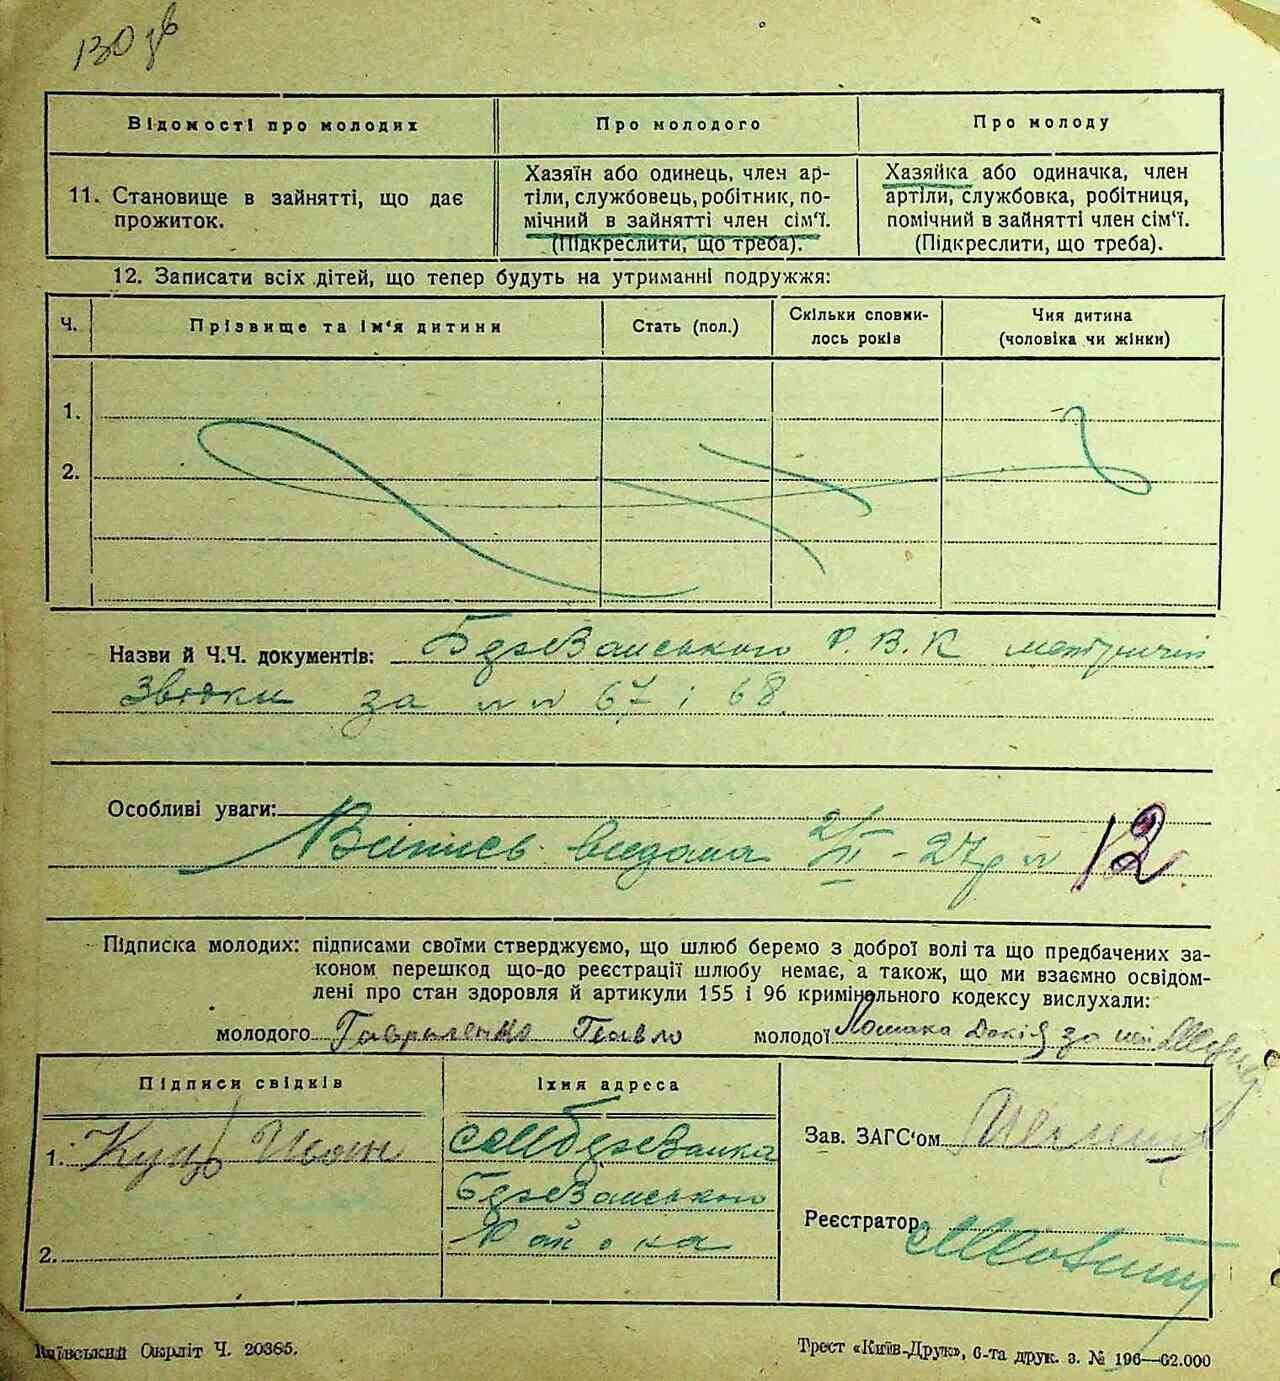 130 зв
Відомості про молодих
Про молодого
Про молоду
11. Становище в зайнятті, що дає прожиток.
Хазяїн або одинець, член ар-
тіли, службовець, робітник, по-
мічний в зайнятті член сім'ї.
(Підкреслити, що треба).
Хазяйка або одиначка, член
артіли, службовка, робітниця,
помічний в зайнятті член сім'ї.
(Підкреслити, що треба).
12. Записати всіх дітей, що тепер будуть на утриманні подружжя:
Ч.
Прізвище та ім'я дитини
Стать (пол.)
Скільки сповни-
лось років
Чия дитина
(чоловіка чи жінки)
1.
2.
Назви й Ч.Ч. документів: Р. В. К
за №№ 67 і 68
Особливі уваги:
Витяг видана 2/II - 27р № 12.
Підписка молодих: підписами своїми стверджуємо, що шлюб беремо з доброї волі та що предбачених за-
коном перешкод що-до реєстрації шлюбу немає, а також, що ми взаємно освідом-
лені про стан здоровля й артикули 155 і 96 кримінального кодексу вислухали:
молодого Гавриленко Павло молодої Лошака Докія за
Підписи свідків
Їхня адреса
1. Куць Иван
района
2.
Зав. ЗАГС'ом
Реєстратор
Київський Окрліт Ч. 20365.
Трест «Київ-Друк», 6-та друк. з. № 196—62.000